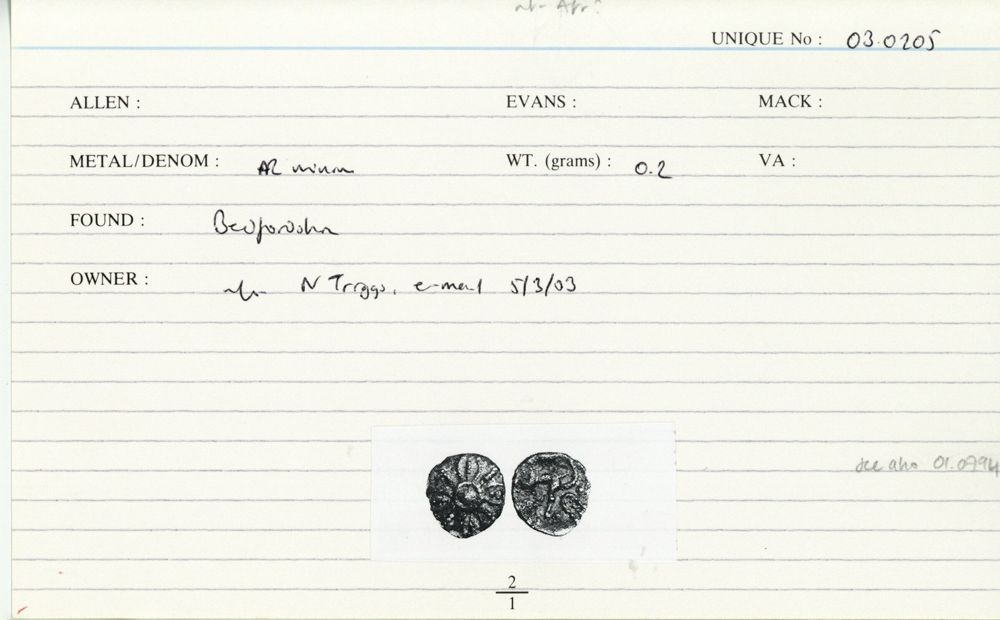 UNIQUE No : 03.0205
ALLEN : EVANS : MACK :
METAL/DENOM : AR minim WT. (grams) : 0.2 VA :
FOUND : Bedfordshire
OWNER : N Triggs, e-mail 5/3/03
see also 01.0794
2
1